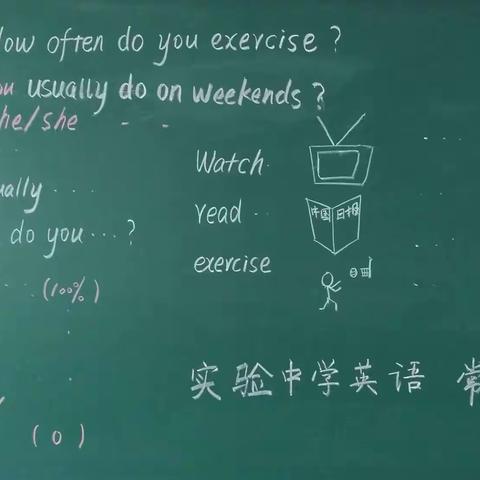 How often do you exercise ?
ou usually do on weekends ?
he/she - -
Watch
ually ....
read ..
中国日报
do you ... ?
exercise
(100%)
实验中学英语 常
( 0 )